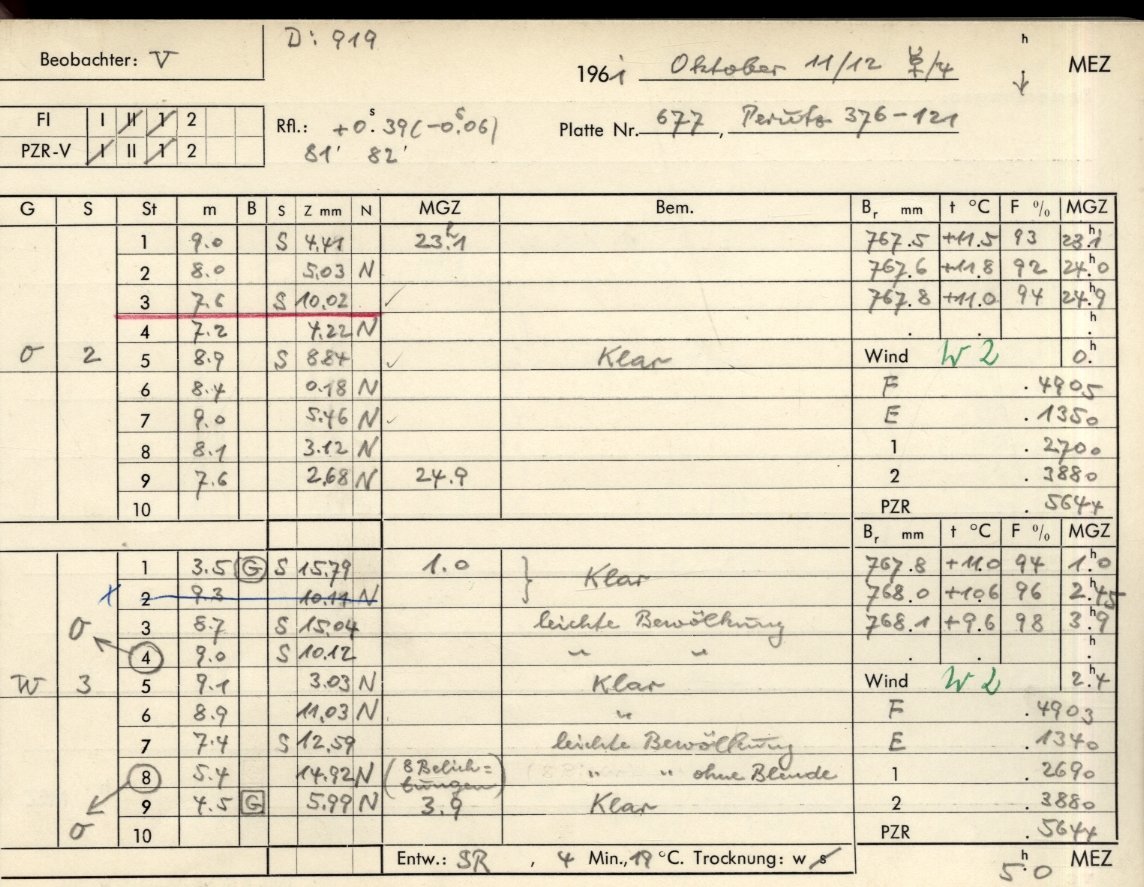 D: 919
Beobachter: V
1961 Oktober 11/12 ☿/4 h MEZ
FI I II 1 2
PZR-V I II 1 2
Rfl.: +0.ˢ39(-0.ˢ06)
81' 82'
Platte Nr. 677, Perutz 376-121
G S St m B S Z mm N MGZ Bem. Bᵣ mm t °C F % MGZ
1 9.0 S 4.41 23.ʰ1 767.5 +11.5 93 23.ʰ1
2 8.0 5.03 N 767.6 +11.8 92 24.ʰ0
3 7.6 S 10.02 ✓ 767.8 +11.0 94 24.ʰ9
4 7.2 4.22 N . . . ʰ
O 2 5 8.9 S 8.84 ✓ Klar Wind W 2 0.ʰ
6 8.4 0.18 N F .4905
7 9.0 5.46 N ✓ E .1350
8 8.1 3.12 N 1 .2700
9 7.6 2.68 N 24.9 2 .3880
10 PZR .5644
Bᵣ mm t °C F % MGZ
1 3.5 G S 15.79 1.0 } Klar 767.8 +11.0 94 1.ʰ0
x 2 9.3 10.11 N 768.0 +10.6 96 2.ʰ45
O 3 8.7 S 15.04 leichte Bewölkung 768.1 +9.6 98 3.ʰ9
4 9.0 S 10.12 " " . . . ʰ
W 3 5 9.1 3.03 N Klar Wind W 2 2.ʰ4
6 8.9 11.03 N " F .4903
7 7.4 S 12.59 leichte Bewölkung E .1340
8 5.4 14.92 N (8 Belich=
tungen) " " ohne Blende 1 .2690
9 4.5 G 5.99 N 3.9 Klar 2 .3880
O 10 PZR .5644
Entw.: SR , 4 Min., 19 °C. Trocknung: w s 5.ʰ0 MEZ